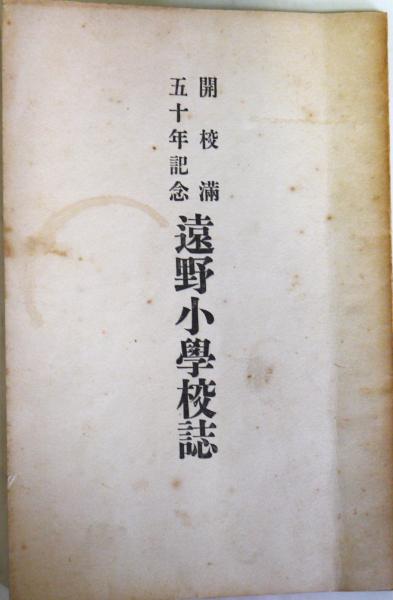 開校滿
五十年記念
遠野小學校誌